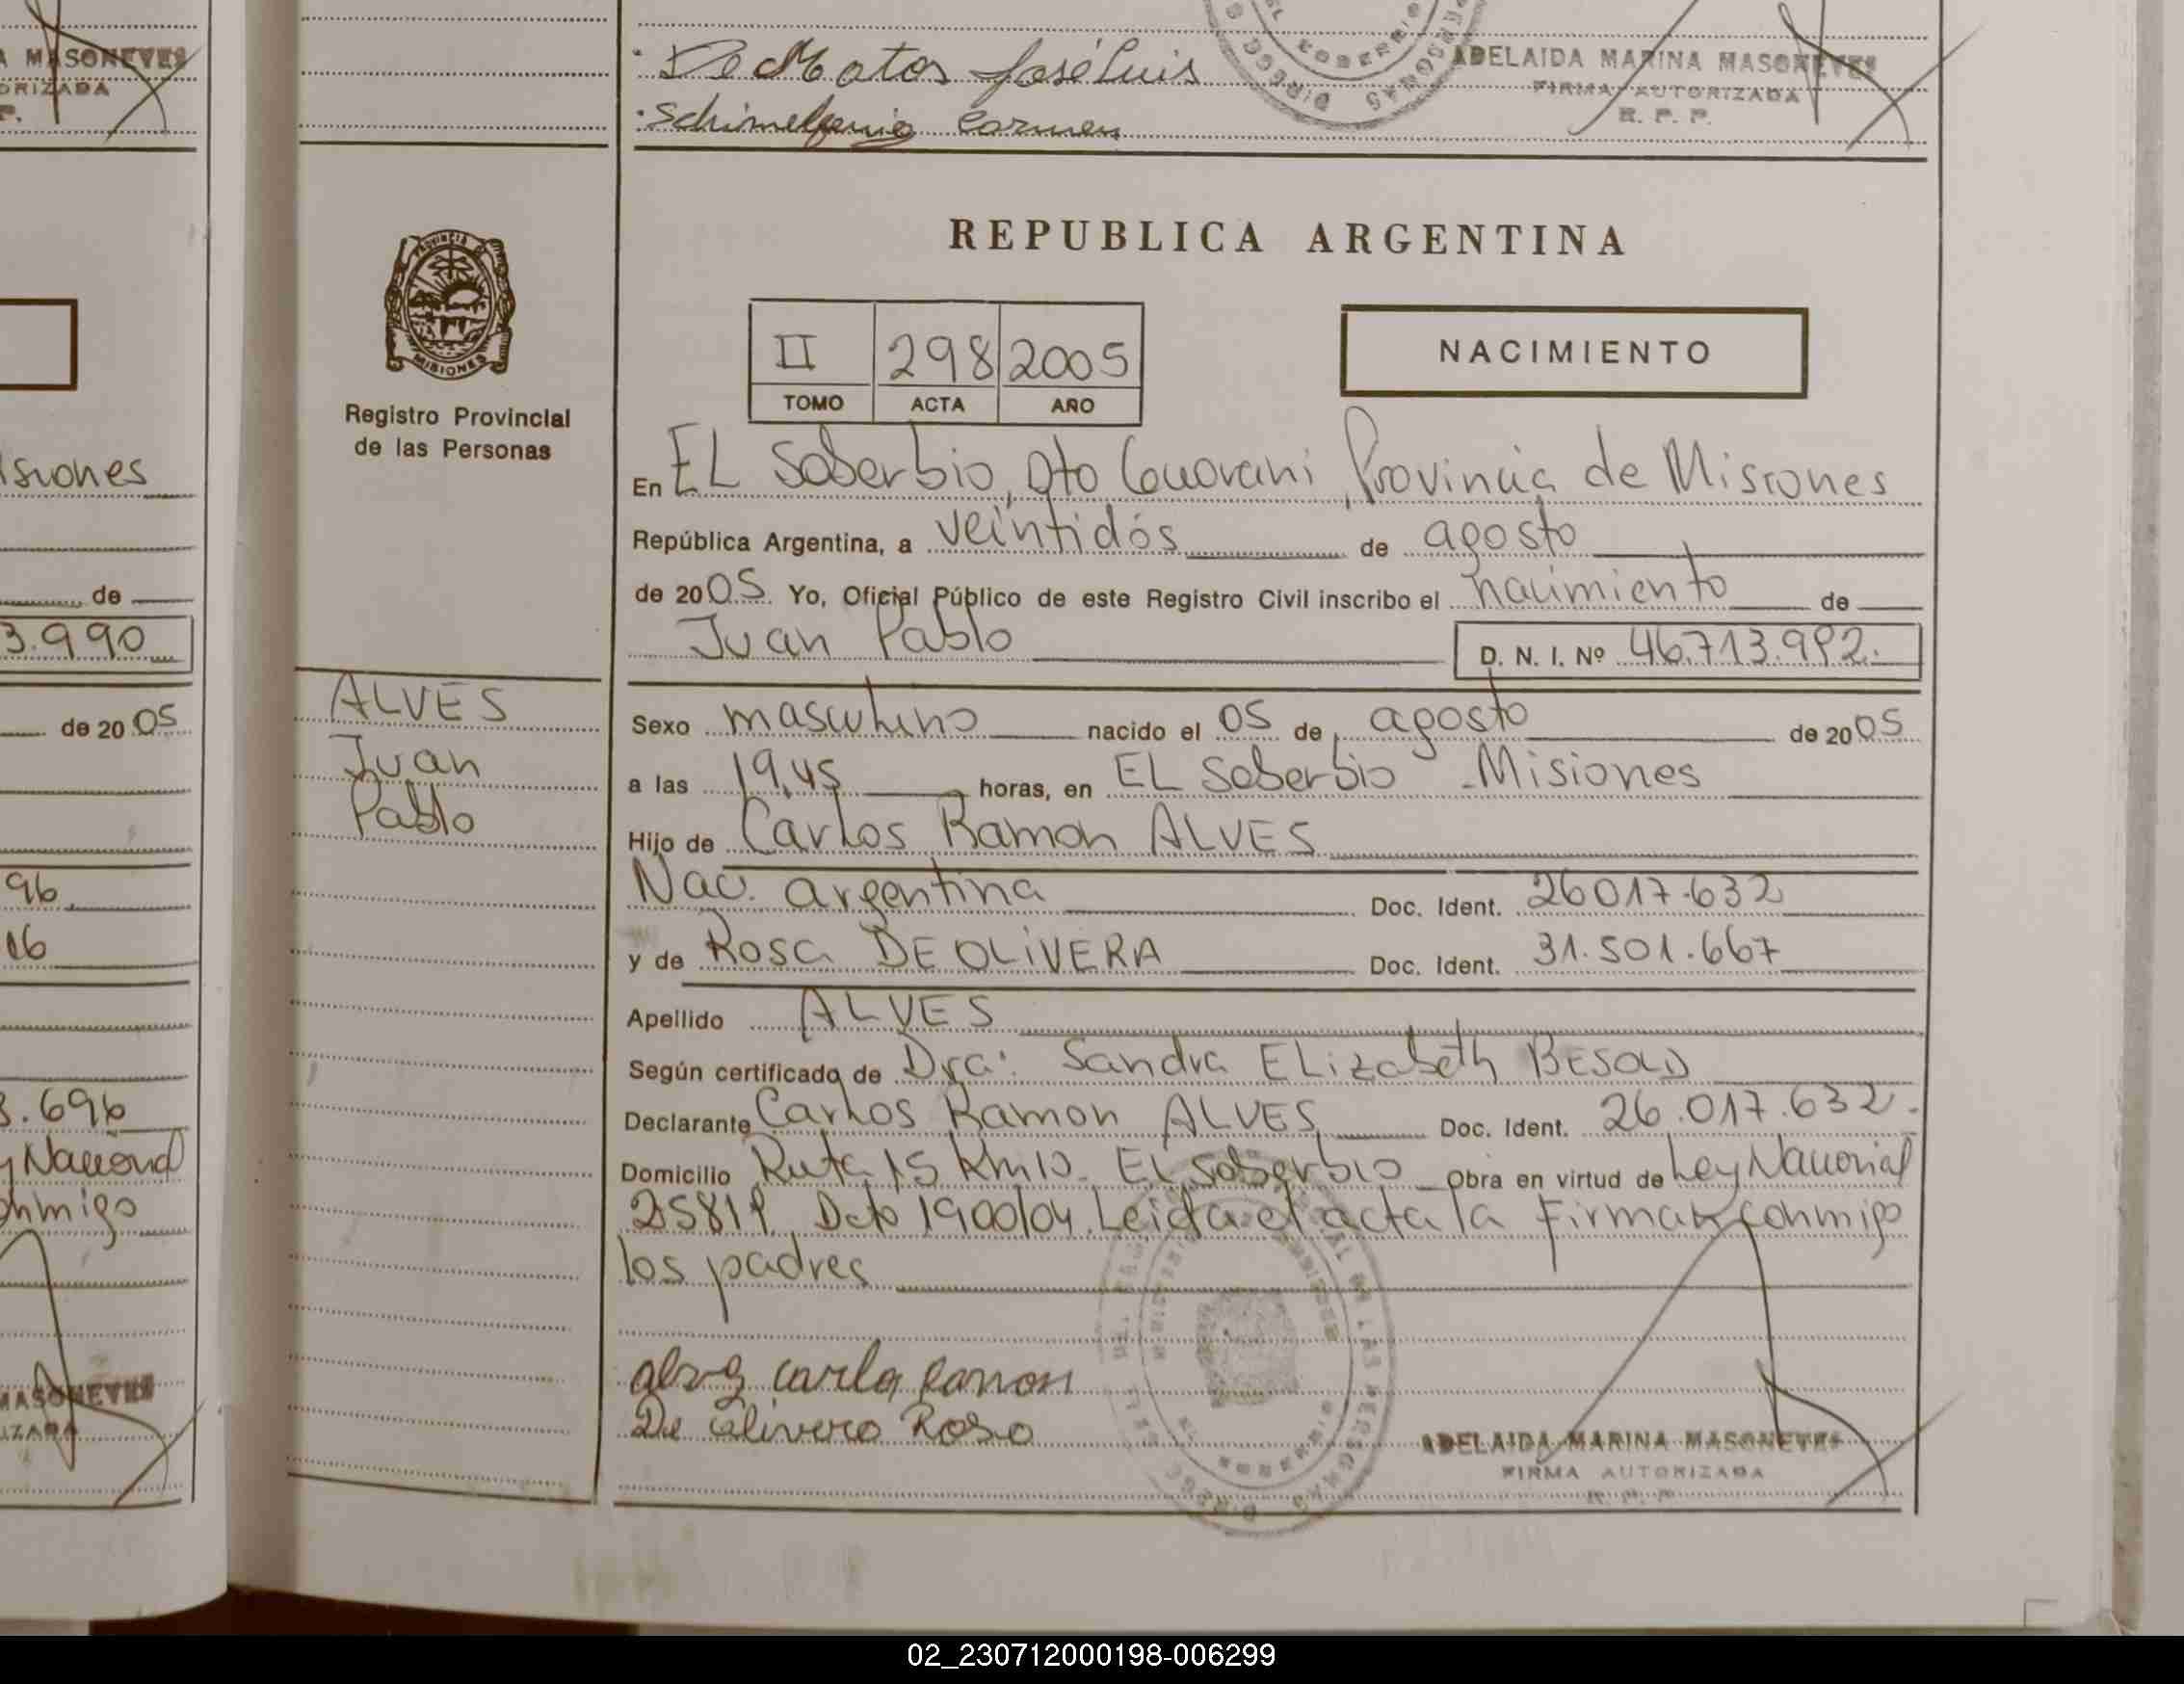 A MASONEVES
ORIZADA
P.
De Matos José Luis
Schimelfenig Carmen
ADELAIDA MARINA MASONEVES
FIRMA AUTORIZADA
R. P. P.
REPUBLICA ARGENTINA
PROVINCIA
MISIONES
Registro Provincial
de las Personas
II 298 2005
TOMO ACTA AÑO
NACIMIENTO
isiones
En EL Soberbio, Dto Guarani, Provincia de Misiones
República Argentina, a veintidós de agosto
de
de 2005 Yo, Oficial Público de este Registro Civil inscribo el nacimiento de
3.990
Juan Pablo D. N. I. Nº 46.713.992.
de 2005
ALVES
Juan
Pablo
Sexo masculino nacido el 05 de agosto de 2005
a las 19,45 horas, en EL Soberbio - Misiones
Hijo de Carlos Ramon ALVES
96
Nac. argentina Doc. Ident. 26017.632
16
y de Rosa DE OLIVERA Doc. Ident. 31.501.667
Apellido ALVES
Según certificado de Dra: Sandra ELizabeth BESOLD
3.696
Declarante Carlos Ramon ALVES Doc. Ident. 26.017.632.
y Nacional
Domicilio Ruta 15 Km 10 EL Soberbio Obra en virtud de Ley Nacional
onmigo
25819 Dcto 1900/04. Leida el acta la Firman conmigo
los padres
alves carlos Ramon
De Olivera Rosa
MASONEVES
IZADA
ADELAIDA MARINA MASONEVES
FIRMA AUTORIZADA
R. P. P.
02_230712000198-006299